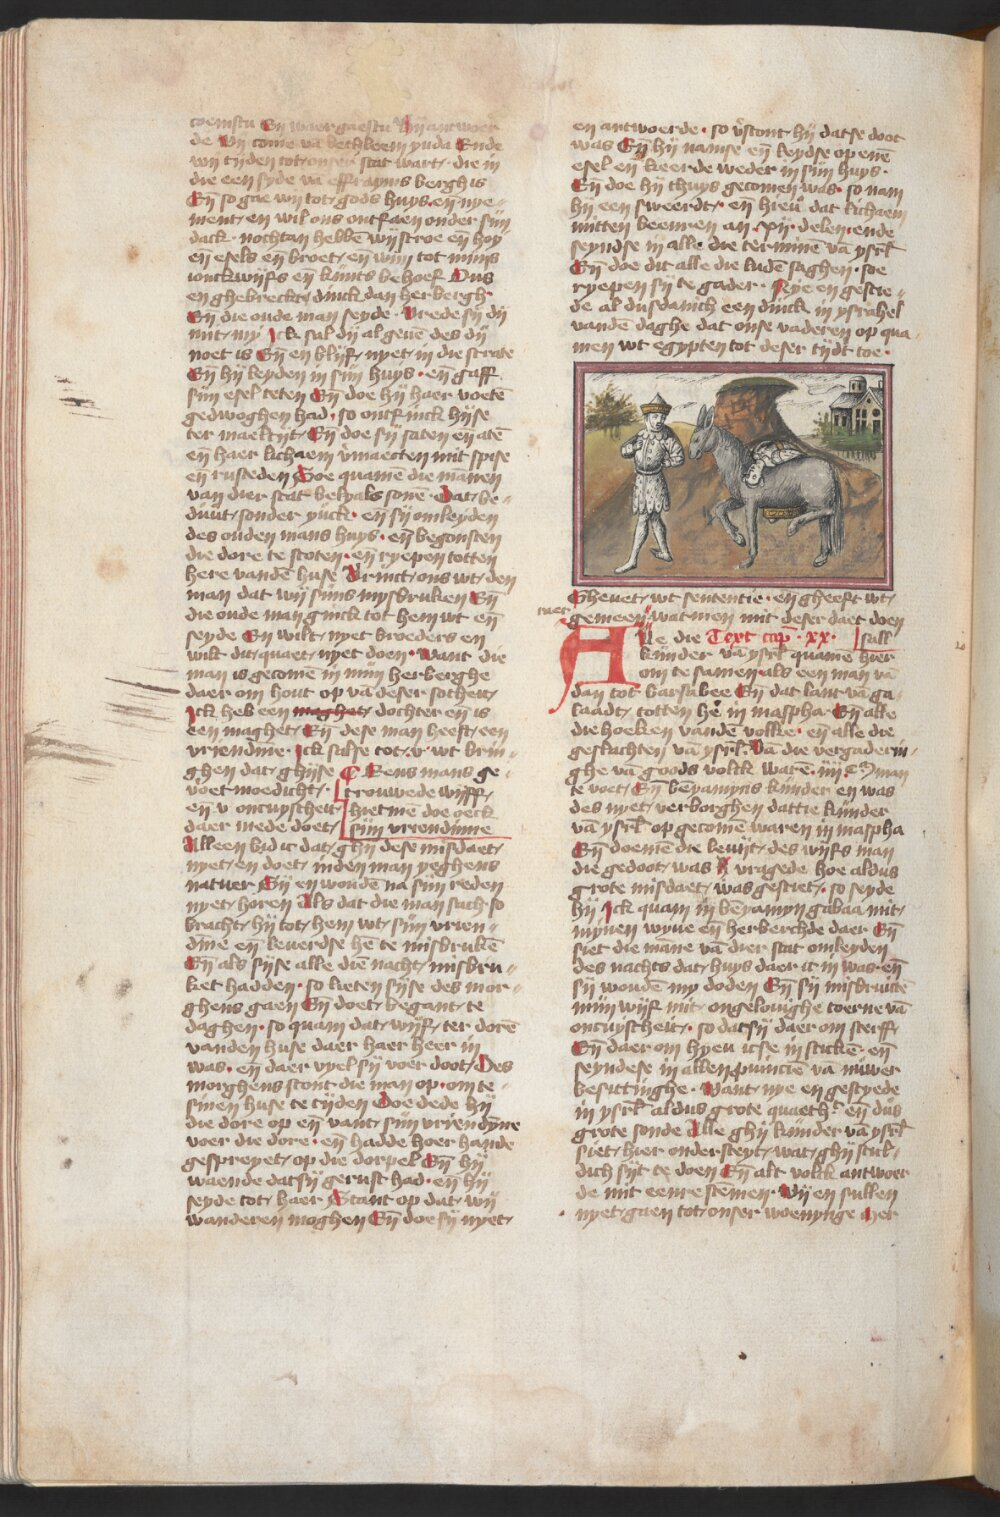 coemstu En̄ waer gaestu Hij antwoer
de Wij come vā bethleem yuda Ende
wij tijden tot onser stat wart · die in
die een syde vā effrayms bergh is
En̄ so gae wij tot gods huys · en nye⸗
ment en wil ons ontfaen onder sijn
dack · nochtan hebbē wij stroe en̄ hoy
en̄ esels en̄ broet en̄ wijn tot mijns
wijfs en̄ knints behoef Ons
en ghebreckt dinck dan herbergh
En̄ die oude man seyde · Vrede sij dij
mit mij Ick sal dij al geuē des dij
noet is En̄ en blijf nyet in die strate
En̄ hij leyden in sijn huys · en̄ gaff
sijn esel teten En̄ doe hij haer voetē
gedwoghen had · so ontfinck hijse
ter maeltijt En̄ doe sij saten en̄ atē
en̄ haer lichaem vmaecten mit spise
en̄ rusteden Soe quamē die mānen
van dier stat belyals sonē · Dat be⸗
duut sonder yuck · en̄ sij omleyden
des ouden mans huys · en̄ begonsten
die dore te stoten · en̄ ryepen totten
here vandē huse Brinct ons wt den
man dat wij sijns mysbruken En̄
die oude man ginck tot hem wt en̄
seyde En̄ wilt nyet broeders en
wilt dit quaet nyet doen · Want die
man is gecomē in mijn herberghe
daer om hout op vā deser sotheit
Ick heb een maghet dochter en̄ is
een maghet En̄ dese man heeft een
vriendine · Ick salse tot v wt brin⸗
ghen dat ghijse
voet moedicht ·
en̄ v oncuyscheit
daer mede doet
Eens mans ge⸗
trouwede wijff
hietmē doe oeck
sijn vriendinne
Alleen bid ic dat ghij dese misdaet
nyet en doet inden man yeghens
natuer En̄ en woudē na sijn reden
nyet horen Als dat die man sach so
bracht hij tot hem wt sijn vrien⸗
dine en̄ leuerdse hē te misbrukē
En̄ als sijse alle diē nacht misbru⸗
ket hadden · so lieten sijse des mor⸗
ghens gaen En̄ doet began te
daghen · so quam dat wijf ter dorē
vanden huse daer haer heer in
was · en̄ daer vyel sij voer doot Des
morghens stont die man op · om te⸗
sinen huse te tijden Doe dede hij
die dore op en̄ vant sijn vriendyne
voer die dore · en̄ hadde hoer hande
gespreyet op die dorpel En̄ hij
waende dat sij gerust had · en̄ hij
seyde tot haer Stant op dat wij
wanderen moghen En̄ doe sij nyet
en antwoerde · so v̄stont hij datse doot
was En̄ hij namse en̄ leydse op enē
esel en̄ keerde weder in sijn huys ·
En̄ doe hij thuys gecomen was · so nam
hij een sweerdt · en̄ hieu dat lichaem
mitten beenren an · xij · delen · ende
seyndse in alle die terminē vā ysrl̄
En̄ doe dit alle die ludē saghen · soe
ryepen sij te gader · Nye en gescie⸗
de al dusdanich een dinck in ysrahel
vandē daghe dat onse vaderen op qua
men wt egypten tot deser tijdt toe ·
Gheuet wt sententie · en gheeft wt
gemeen wat men mit deser daet doen
Alle die Text cap · xx · sall
kijnder vā ysrl̄ quamē hier
om te samen als een man vā
dan tot barsabee En̄ dat lant vā ga⸗
laadt totten hē in maspha · En̄ alle
die hoeken vandē volke · en̄ alle die
geslachten vā ysrl̄ · Vā die vergaderin⸗
ghe vā goods volck warē · iiij c m man
te voet En̄ benyamyns kijnder en was
des nyet verborghen dat tie kijnder
vā ysrl̄ op gecomē waren in maspha
En̄ doemē die leuijt des wijfs man
die gedoot was vragede hoe aldus
grote misdaet was gesciet · so seyde
hij Ick quam in bēyamyn gabaa mit
mijnen wyue en̄ herberchde daer En̄
siet die mānē vā dier stat omleyden
des nachts dat huys daer ic in was · en̄
sij woudē my doden En̄ sij misbructē
mijn wijf mit ongelouighe toerne vā
oncuyscheit · so dat sij daer om sterff
En̄ daer om hyeu icse in stuckē · en̄
seyndese in allen puinciē vā uwer
besittinghe · Want nye en gesciede
in ysrl̄ aldus grote quaeth · en̄ dus
grote sonde Alle ghij kijnder vā ysrl̄
siet hier ondersteyt wat ghij scul⸗
dich sijt te doen En̄ alt volck antwoer
de mit eenre stemen · Wij en sullen
nyet gaen tot onser woenynge Mer